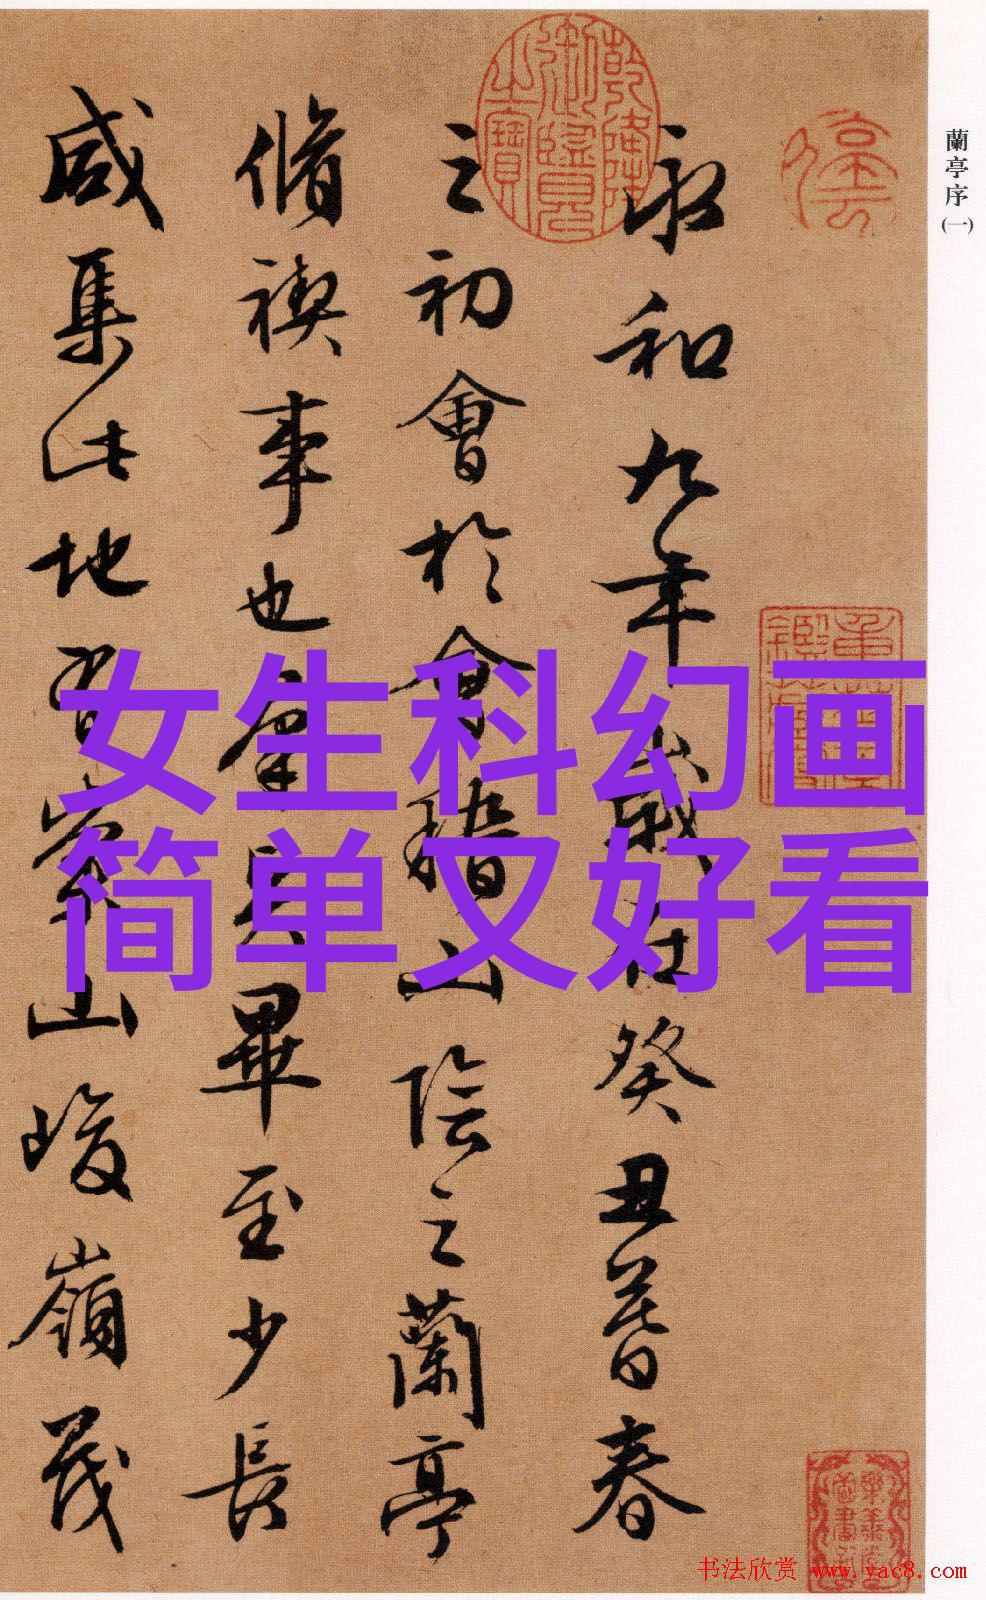 永和九年歲在癸丑暮春
之初會於會稽山陰之蘭亭
脩禊事也羣賢畢至少長
咸集此地有崇山峻嶺茂
蘭亭序
(一)
乾隆御覽之寶
女生科幻画
简单又好看
书法欣赏 www.yac8.com